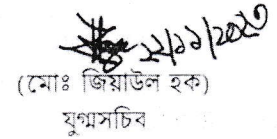 ২২/১১/২০২৩
(মোঃ জিয়াউল হক)
যুগ্মসচিব